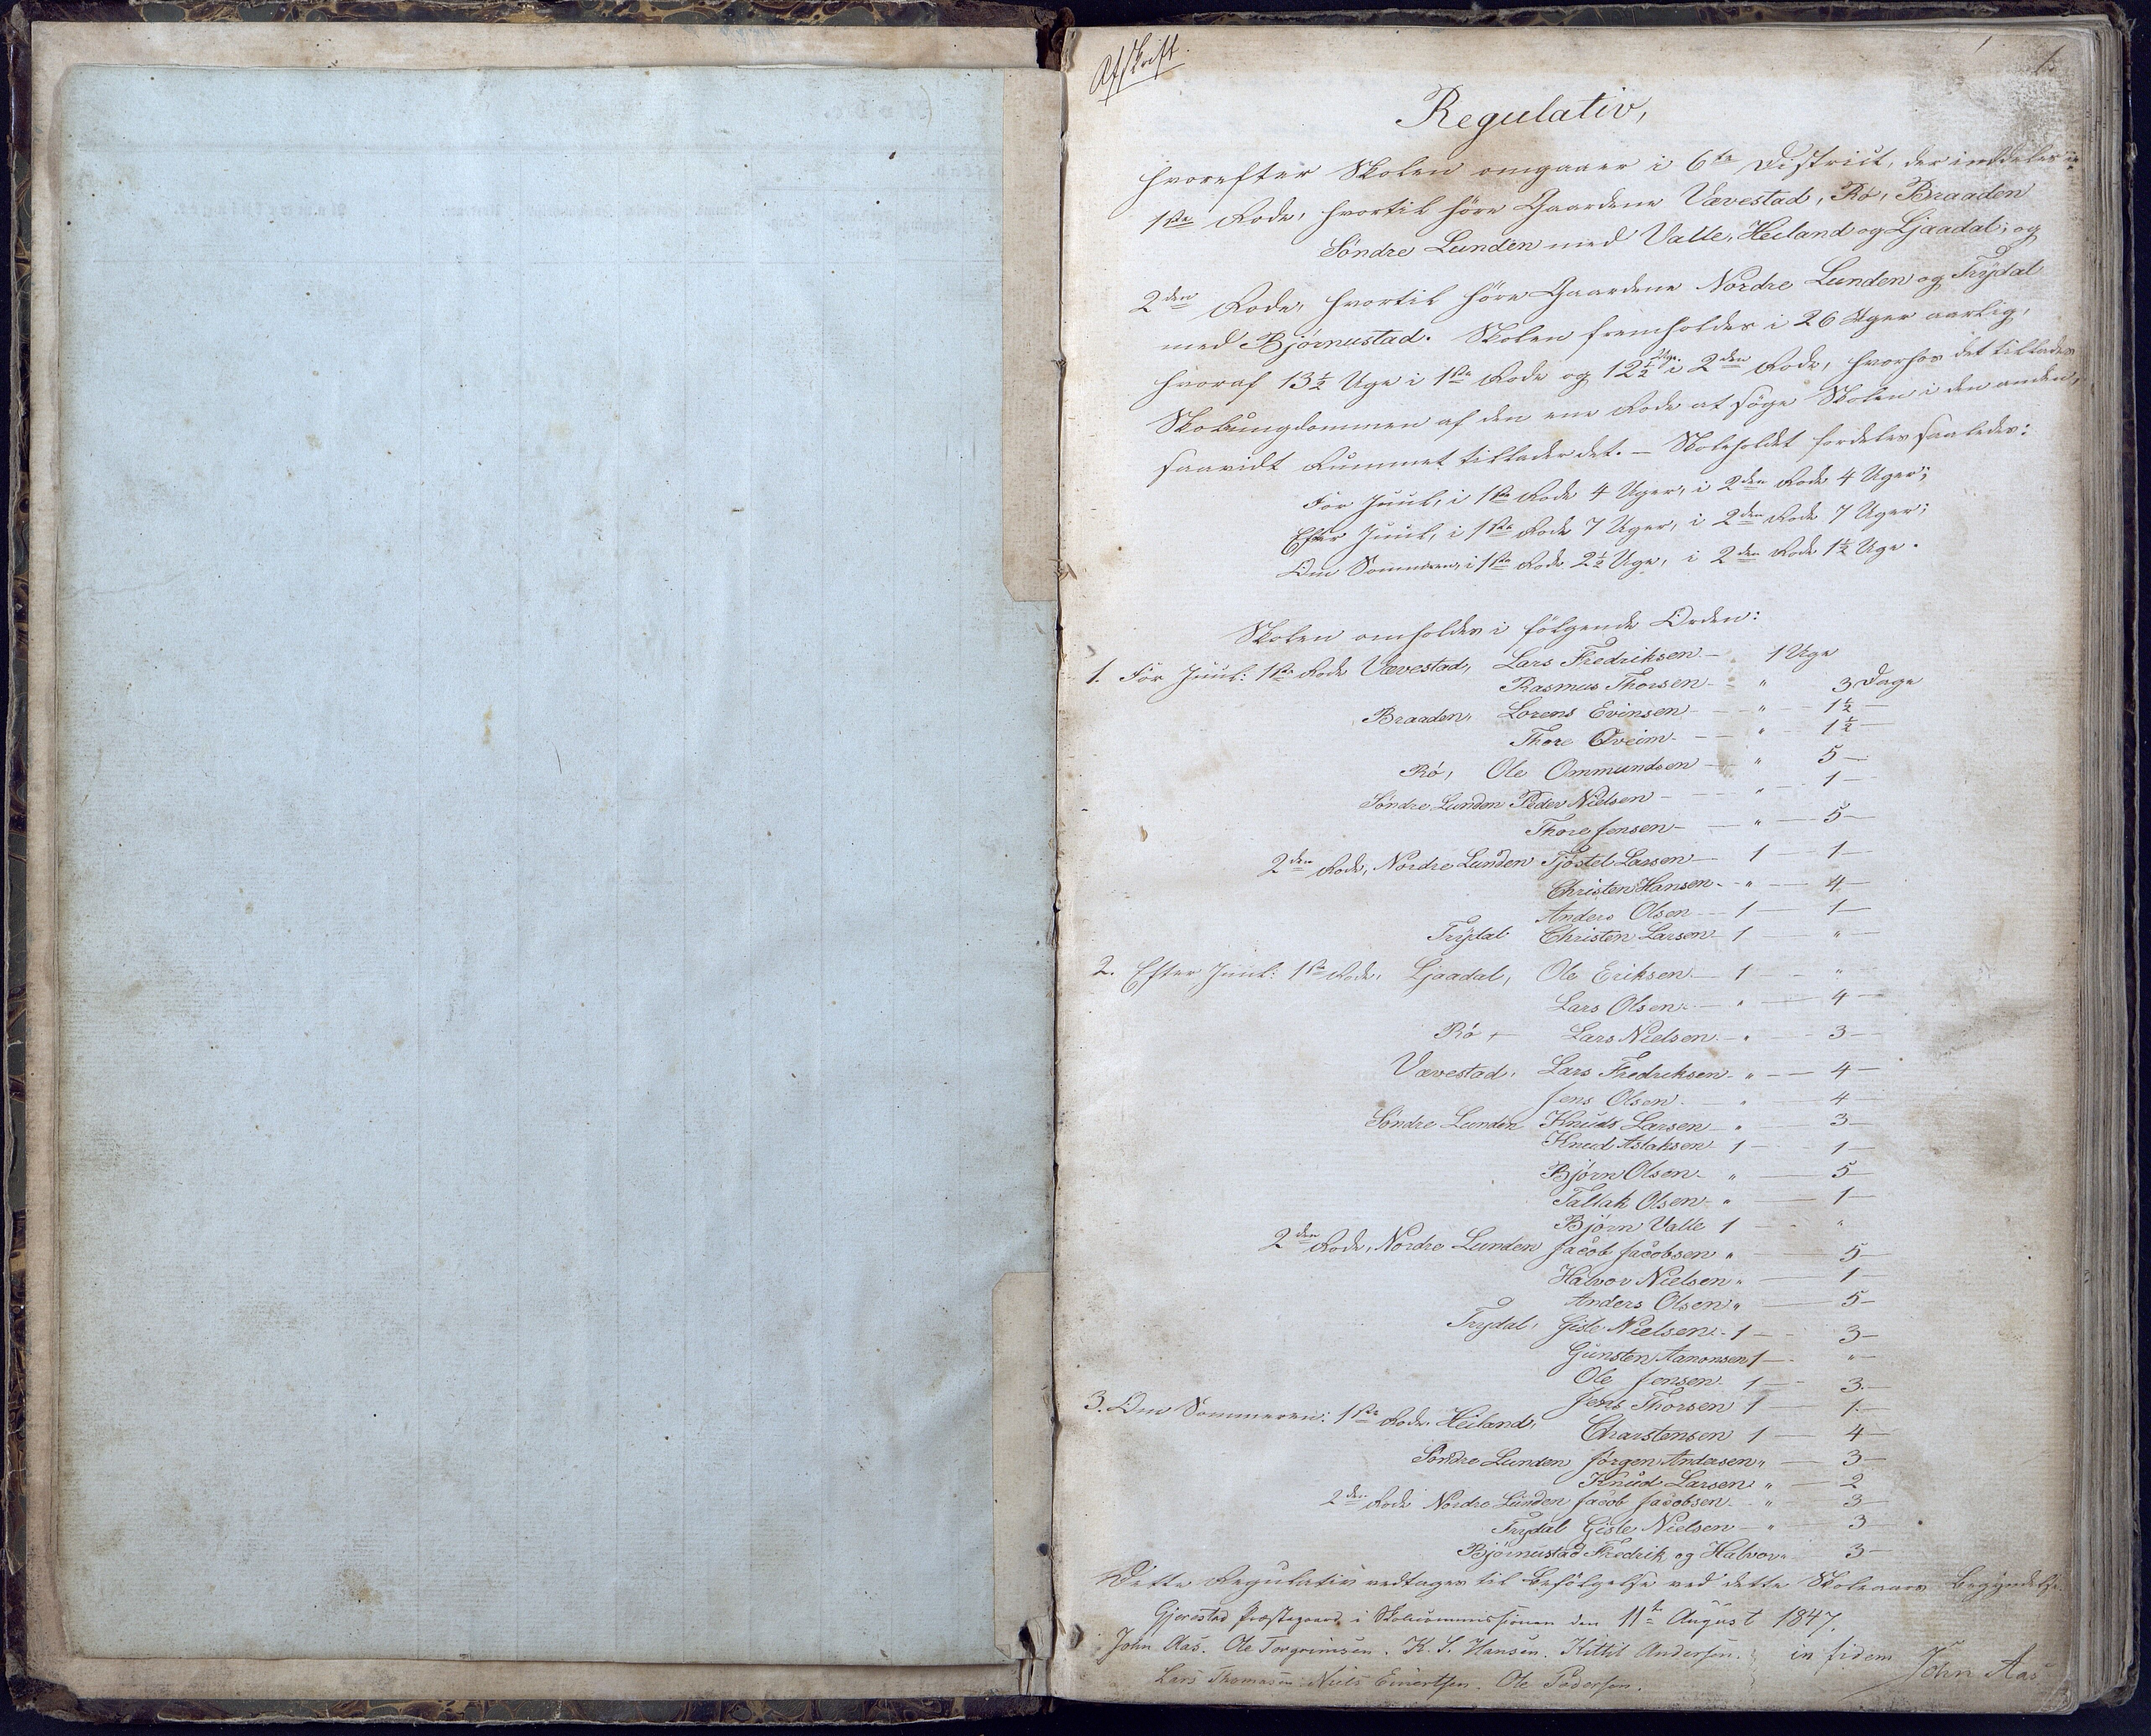 Afskrift.
1.
Regulativ,
hvorefter Skolen omgaaer i 6te District, der inddeles i
1ste Rode, hvortil høre Gaardene Vævestad, Rø, Braaden
Søndre Lunden med Valle, Heiland og Ljaadal; og
2den Rode, hvortil høre Gaardene Nordre Lunden og Trydal
med Bjørnustad. Skolen fremholdes i 26 Uger aarlig,
hvoraf 13½ Uge i 1ste Rode og 12½ Uge i 2den Rode, hvorhos det tillades
Skoleungdommen af den ene Rode at søge Skolen i den anden,
saavidt Rummet tillader det. – Skoleholdet fordeles saaledes:
Før Juul, i 1ste Rode 4 Uger, i 2den Rode 4 Uger;
Efter Juul, i 1ste Rode 7 Uger, i 2den Rode 7 Uger;
Om Sommeren, i 1ste Rode 2½ Uge, i 2den Rode 1½ Uge.
Skolen omholdes i følgende Orden:
1. Før Juul: 1ste Rode Vævestad, Lars Fredriksen – 1 Uge
Rasmus Thorsen – " 3 Dage
Braaden, Lorens Evinsen – " – 1½ –
Thore Qveim – " – 1½ –
Rø, Ole Ommundsen – " 5 –
Søndre Lunden Peder Nielsen – " – 1 –
Thore Jensen – " – 5 –
2den Rode, Nordre Lunden Tjøstel Larsen – 1 – 1 –
Christen Hansen – " – 4 –
Anders Olsen – 1 – 1 –
Trydal Christen Larsen 1 – " –
2. Efter Juul: 1ste Rode, Ljaadal, Ole Eriksen – 1 – "
Lars Olsen – " – 4 –
Rø, – Lars Nielsen – " – 3 –
Vævestad, Lars Fredriksen – " – 4 –
Jens Olsen – " – 4 –
Søndre Lunden Knuds Larsen – " 3 –
Knud Aslaksen 1 – 1 –
Bjørn Olsen – " – 5 –
Tallak Olsen – " – 1 –
Bjørn Valle 1 – "
2den Rode, Nordre Lunden Jacob Jacobsen " 5 –
Halvor Nielsen " – 1 –
Anders Olsen " – 5 –
Trydal, Gisle Nielsen – 1 – 3 –
Gunsten Aanonsen 1 – " –
Ole Jensen – 1 – 3 –
Jens Thorsen 1 – 1 –
3. Om Sommeren: 1ste Rode. Heiland, Charstensen 1 – 4 –
Søndre Lunden Jørgen Andersen " – 3 –
Knud Larsen " – 2
2den Rode Nordre Lunden Jacob Jacobsen – " 3 –
Trydal Gisle Nielsen – " 3 –
Bjørnustad Fredrik og Halvor " 3 –
Dette Regulativ vedtages til Befølgelse ved dette Skoleaars Begyndelse.
Gjerestad Præstegaard i Skolecommissionen den 11te August 1847.
John Aas. Ole Torgrimsen. K. S. Hansen. Kittil Andersen. in fidem
Lars Thomasen. Niels Einertsen. Ole Pedersen. John Aas